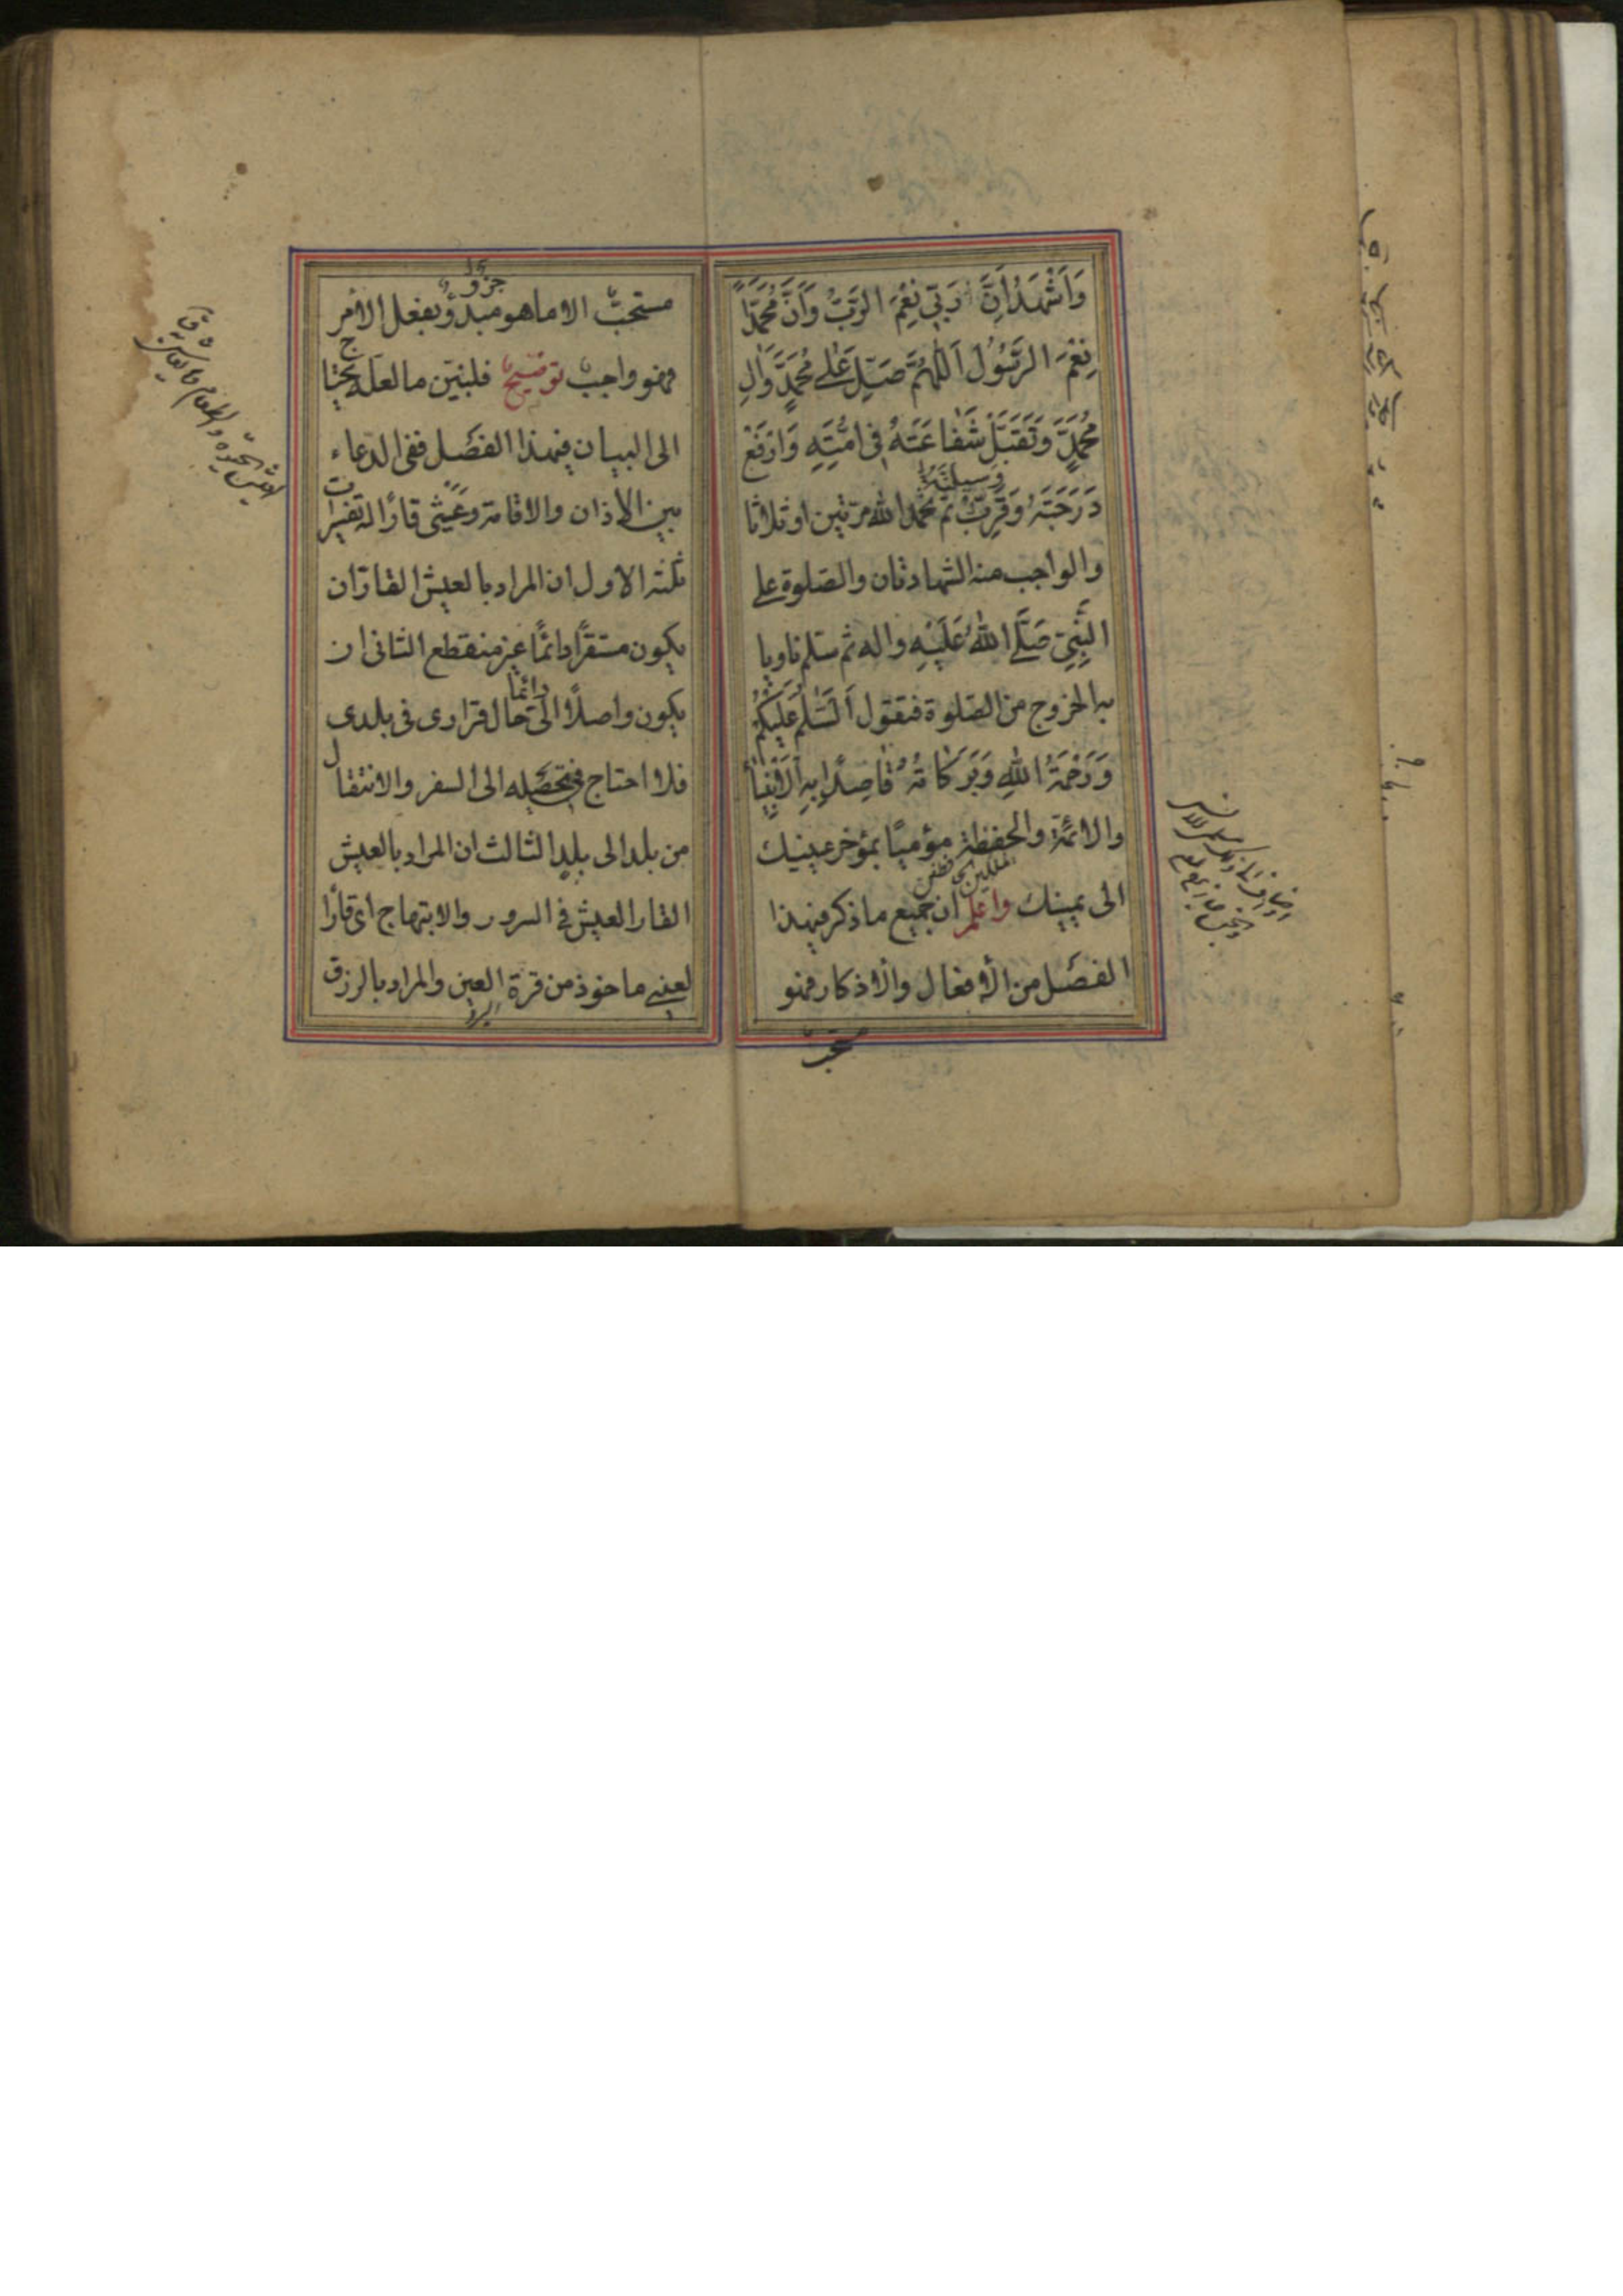 وَاَشْهَدُ اَنَّ رَبّي نِعْمَ الرَّبُّ وَاَنَّ مُحَمَّدًا
نِعْمَ الرَّسُولُ اَللّهُمَّ صَلِّ عَلى مُحَمَّدٍ وَالِ
مُحَمَّدٍ وَتَقَبَّلْ شَفاعَتَهُ في اُمَّتِهِ وَارْفَعْ
وسيلته
دَرَجَتَهُ وَقَرِّبْ ثم تحمد الله مرتين او ثلاثا
والواجب منه الشهادتان والصلوة على
النَّبِيِّ صَلَّى اللهُ عَلَيْهِ واله ثم تسلم ناويا
به الخروج من الصلوة فتقول اَلسَّلامُ عَلَيْكُمْ
وَرَحْمَةُ اللهِ وَبَرَكاتُهُ قاصدًا به الانبياء
والائمة والحفظة مؤميًا بمؤخر عينيك
الى يمينك واعلم ان جميع ما ذكر فيهذا
الفصل من الافعال والاذكار فهو
مستحب
مستحب الا ما هو مبدؤ بفعل الامر
جزو
فهو واجب توضيح فلنبين ما لعله يحتاج
الى البيان فيهذا الفصل ففى الدعاء
بين الاذان والاقامة وعيشى قارًا له تفسيرات
ثلثة الاول ان المراد بالعيش القار ان
يكون مستقرًا دائمًا غير منقطع الثانى ان
دائما
يكون واصلًا الىّ حال قرارى فى بلدى
فلا احتاج فى تحصيله الى السفر والانتقال
من بلد الى بلد الثالث ان المراد بالعيش
القار العيش فى السرور والابتهاج اى قارًا
لعينى ماخوذ من قرة العين والمراد بالرزق